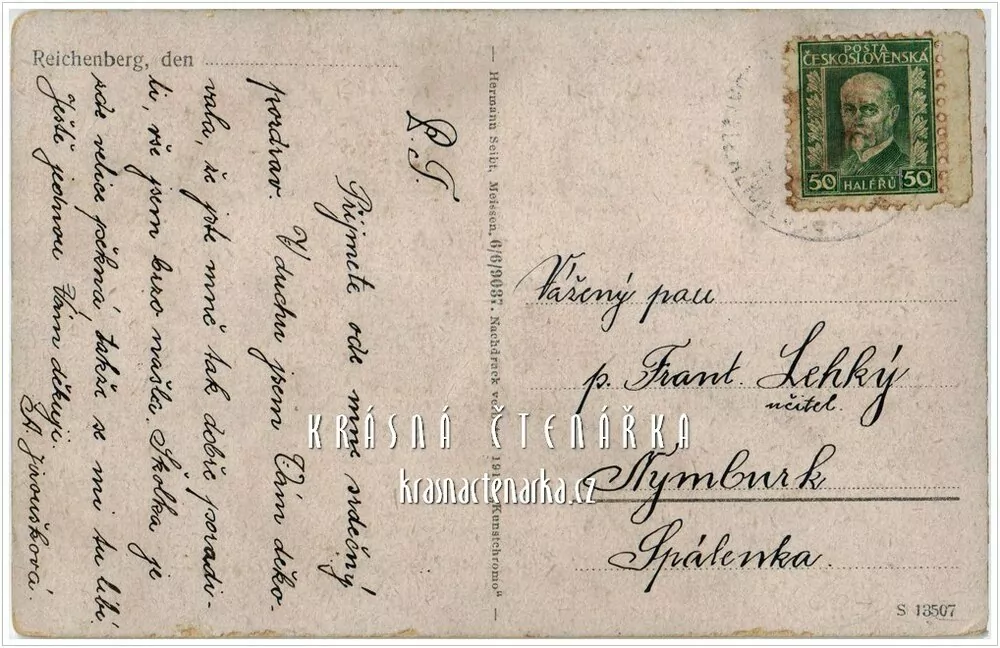 Reichenberg, den
P. T.
Přijmete ode mne srdečný
pozdrav. V duchu jsem Vám děko-
vala, že jste mně tak dobře poradi-
li, vše jsem brzo našla. Školka je
zde velice pěkná, takže se mi tu líbí.
Ještě jednou Vám děkuji.
A. Jiroušková.
— Hermann Seibt, Meissen, 6/6/9037. Nachdruck "Kunstchromo" —
POSTA
ČESKOSLOVENSKÁ
50 HALÉŘŮ 50
Vážený pan
p. Frant. Lehký
učitel.
Nymburk
Spálenka.
S 13507
KRÁSNÁ ČTENÁŘKA
krasnactenarka.cz